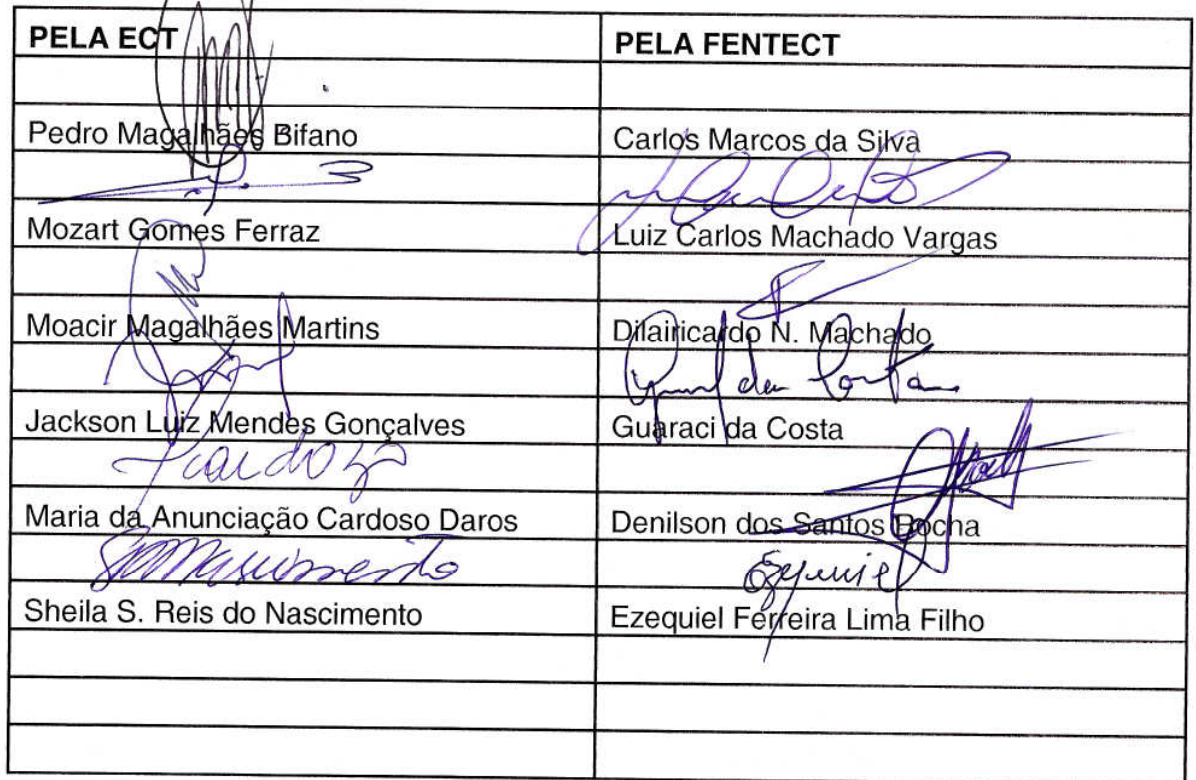 PELA ECT
PELA FENTECT
Pedro Magalhães Bifano
Carlos Marcos da Silva
Mozart Gomes Ferraz
Luiz Carlos Machado Vargas
Moacir Magalhães Martins
Dilairicardo N. Machado
Guaraci da Costa
Jackson Luiz Mendes Gonçalves
Guaraci da Costa
Cardozo
Maria da Anunciação Cardoso Daros
Denilson dos Santos Rocha
Nascimento
Ezequiel
Sheila S. Reis do Nascimento
Ezequiel Ferreira Lima Filho